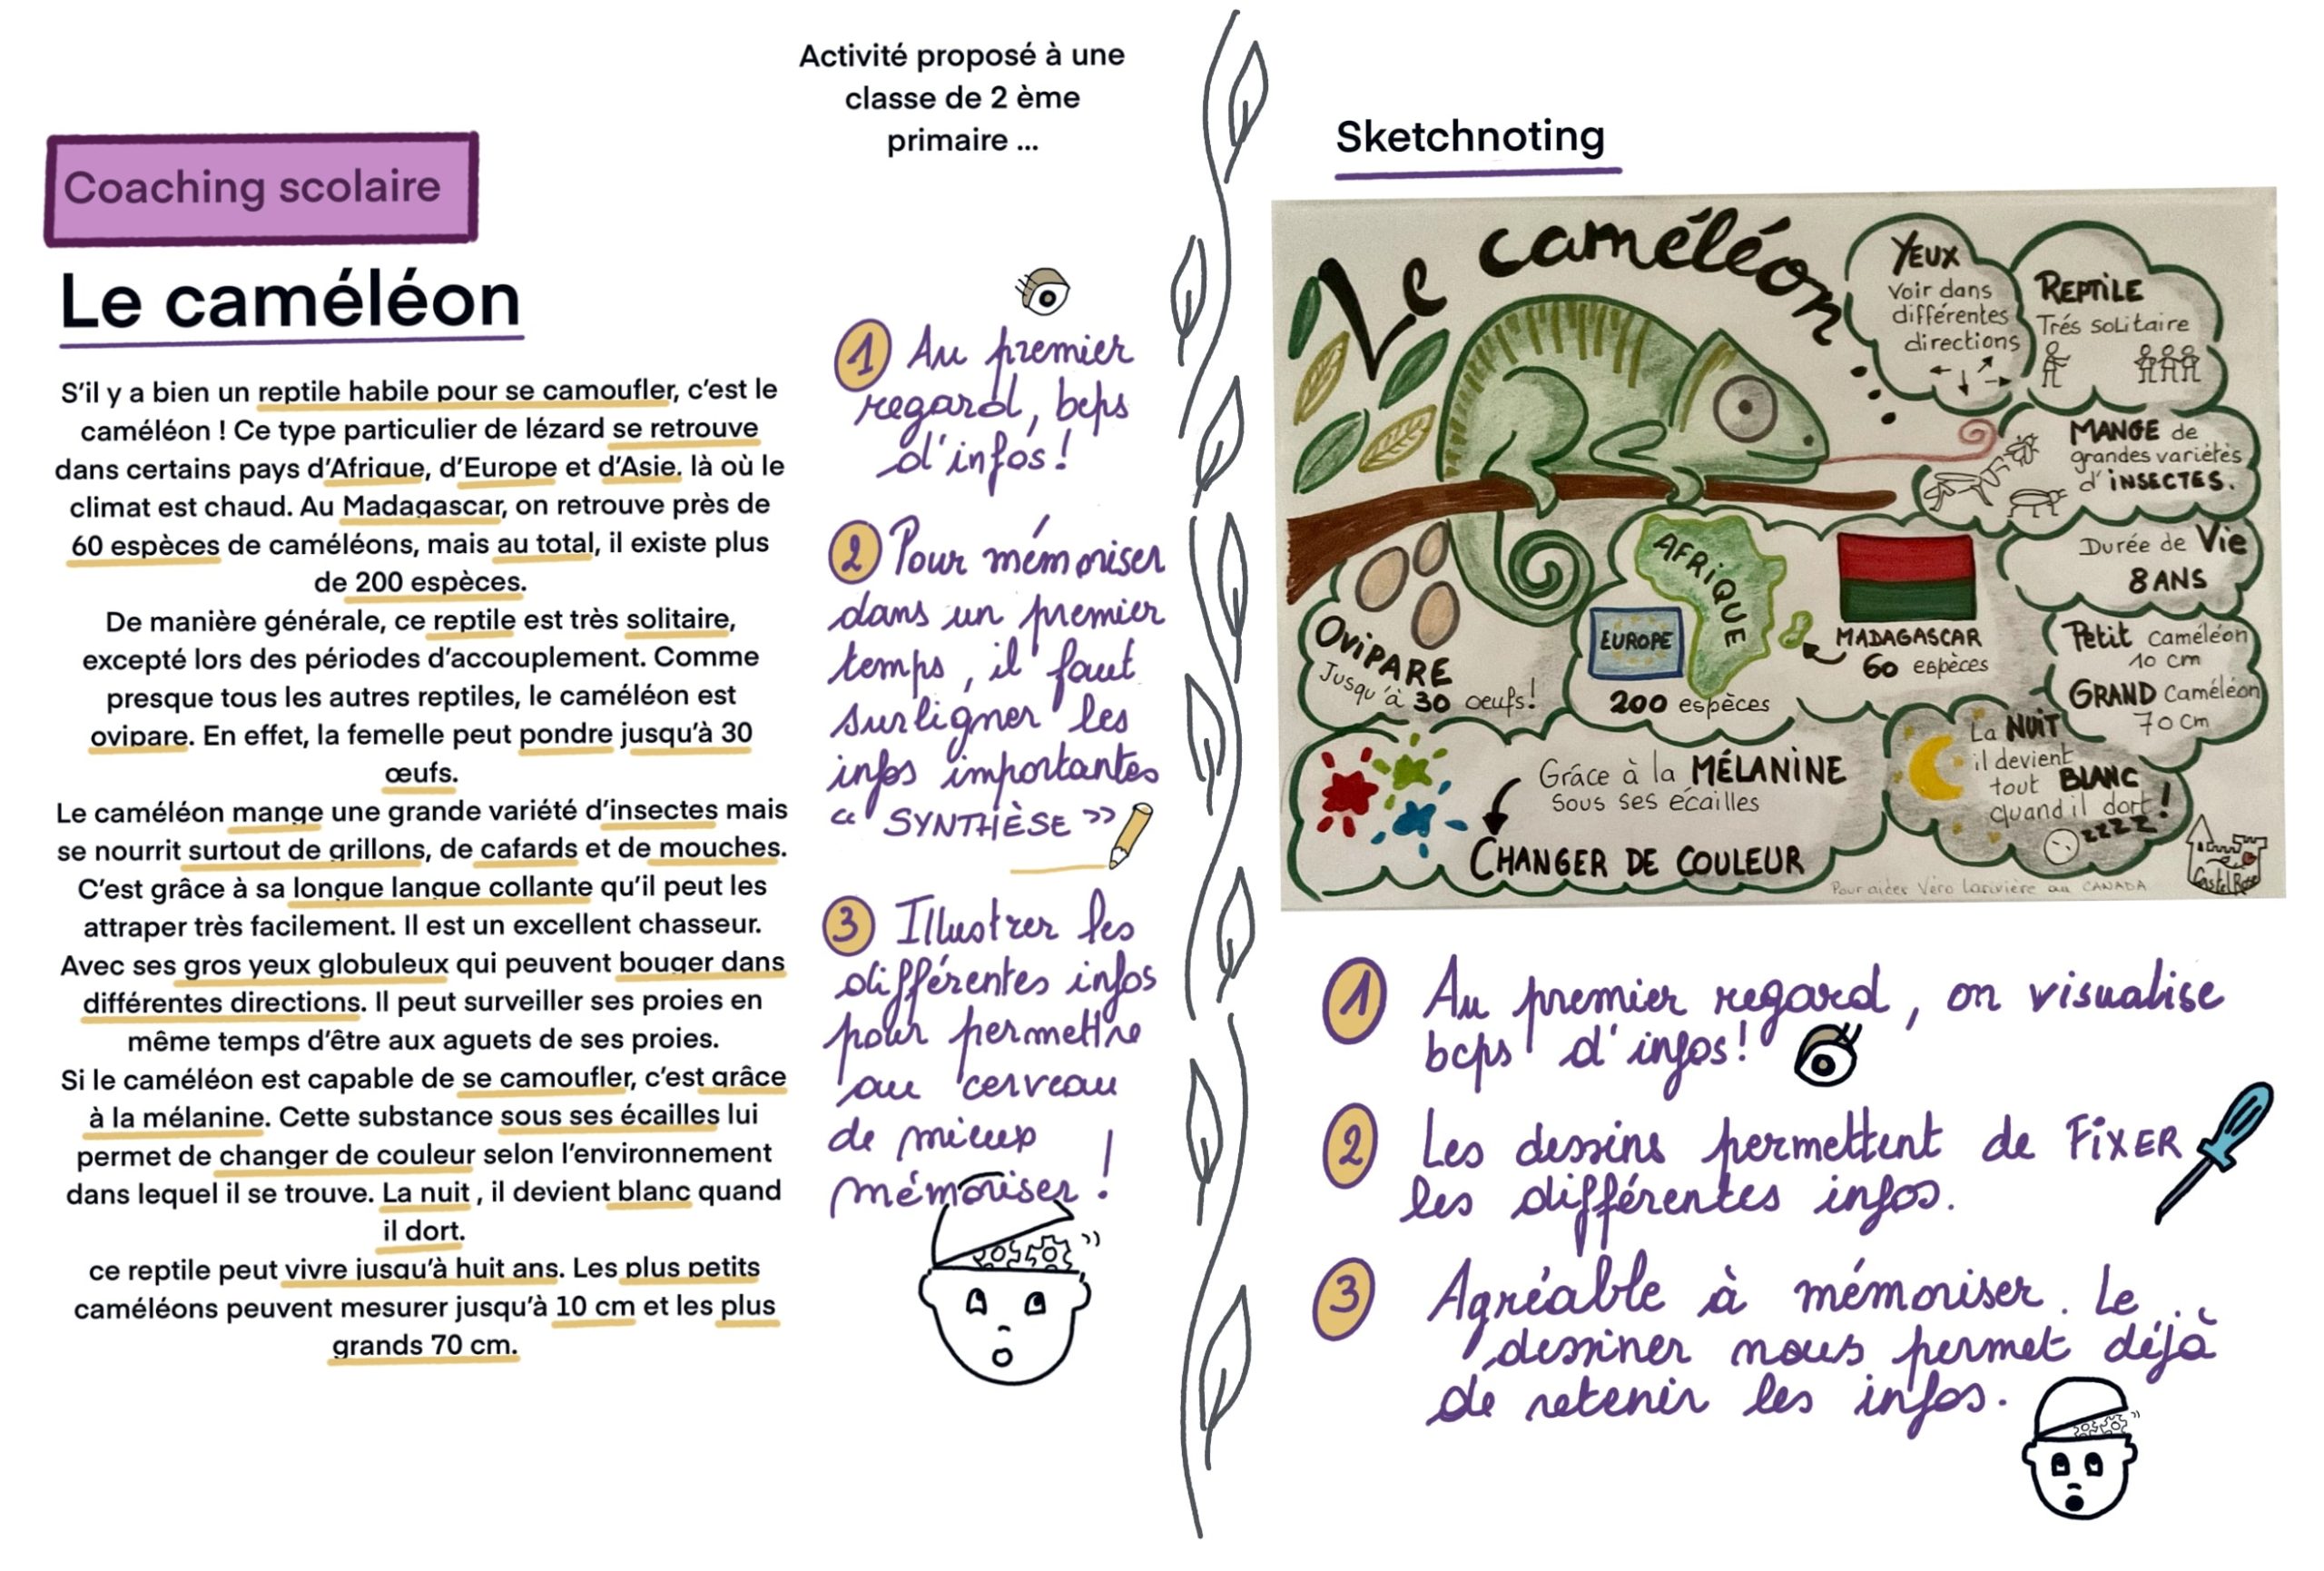 Activité proposé à une
classe de 2 ème
primaire ...
Coaching scolaire
Le caméléon
S'il y a bien un reptile habile pour se camoufler, c'est le
caméléon ! Ce type particulier de lézard se retrouve
dans certains pays d'Afrique, d'Europe et d'Asie. là où le
climat est chaud. Au Madagascar, on retrouve près de
60 espèces de caméléons, mais au total, il existe plus
de 200 espèces.
De manière générale, ce reptile est très solitaire,
excepté lors des périodes d'accouplement. Comme
presque tous les autres reptiles, le caméléon est
ovipare. En effet, la femelle peut pondre jusqu'à 30
œufs.
Le caméléon mange une grande variété d'insectes mais
se nourrit surtout de grillons, de cafards et de mouches.
C'est grâce à sa longue langue collante qu'il peut les
attraper très facilement. Il est un excellent chasseur.
Avec ses gros yeux globuleux qui peuvent bouger dans
différentes directions. Il peut surveiller ses proies en
même temps d'être aux aguets de ses proies.
Si le caméléon est capable de se camoufler, c'est grâce
à la mélanine. Cette substance sous ses écailles lui
permet de changer de couleur selon l'environnement
dans lequel il se trouve. La nuit , il devient blanc quand
il dort.
ce reptile peut vivre jusqu'à huit ans. Les plus petits
caméléons peuvent mesurer jusqu'à 10 cm et les plus
grands 70 cm.
1 Au premier
regard, bcps
d'infos!
2 Pour mémoriser
dans un premier
temps, il faut
surligner les
infos importantes
"SYNTHÈSE"
3 Illustrer les
différentes infos
pour permettre
au cerveau
de mieux
mémoriser !
Sketchnoting
Le caméléon
YEUX
Voir dans
différentes
directions
REPTILE
Trés solitaire
MANGE de
grandes variétés
d'INSECTES.
Durée de Vie
8 ANS
Petit caméléon
10 cm
GRAND caméléon
70 cm
AFRIQUE
EUROPE
200 espèces
MADAGASCAR
60 espèces
OVIPARE
Jusqu'à 30 oeufs!
Grâce à la MÉLANINE
sous ses écailles
CHANGER DE COULEUR
La NUIT
il devient
tout BLANC
quand il dort !
zzzz
CastelRose
Pour aider Véro Larivière au CANADA
1 Au premier regard, on visualise
bcps d'infos!
2 Les dessins permettent de FIXER
les différentes infos.
3 Agréable à mémoriser. Le
dessiner nous permet déjà
de retenir les infos.